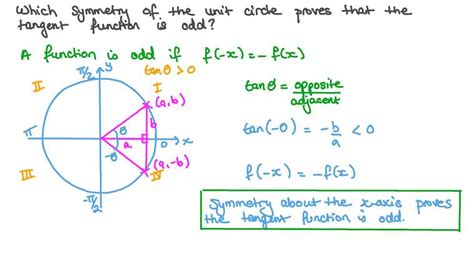 Which symmetry of the unit circle proves that the
tangent function is odd?
A function is odd if f(-x) = -f(x)
π/2 y tanθ > 0
II I
(a,b)
tanθ = opposite
adjacent
θ b
π a 0 x
-θ
tan(-θ) = -b/a < 0
(a,-b)
III IV
f(-x) = -f(x)
-π/2
Symmetry about the x-axis proves
the tangent function is odd.